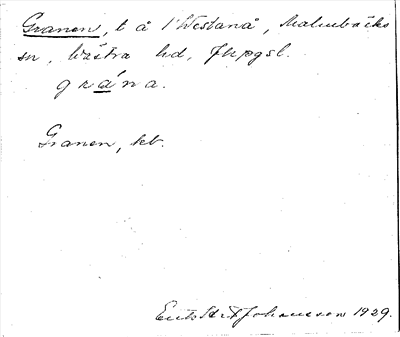 Granen, t å 1 Westanå, Malmbäcks
sn, Västra hd, Jkpgsl.
grána.
Granen, kb.
Johansson 1929.